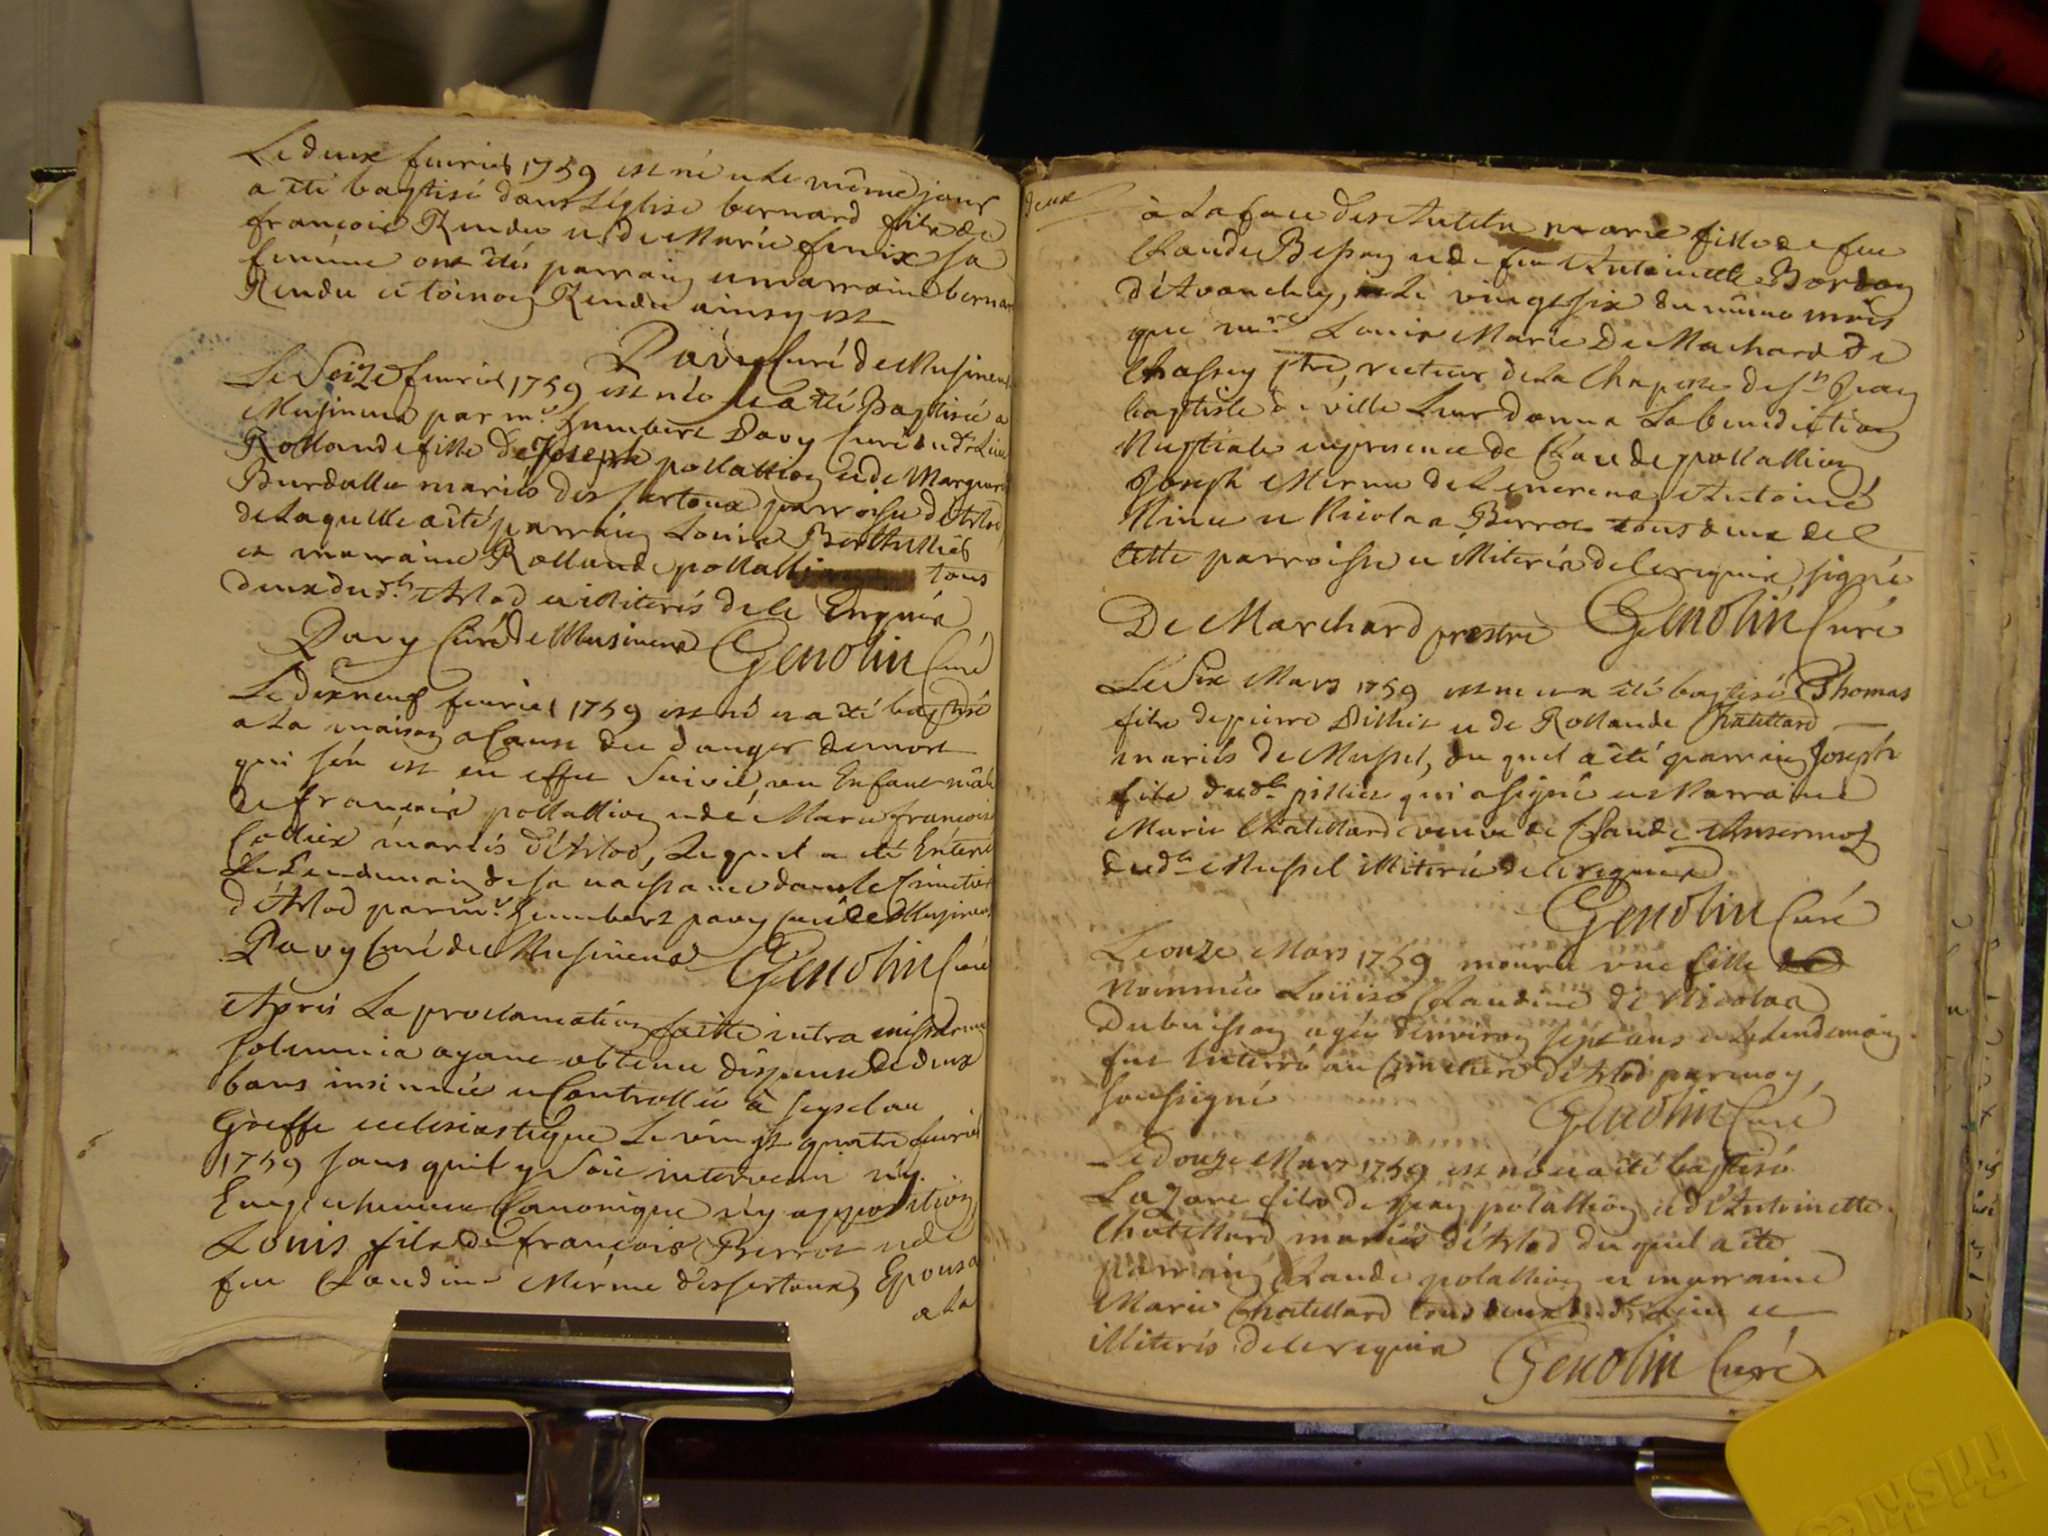 Le deux feurier 1759 est né et le même jour
a été baptisé dans Léglise bernard fils de
françois Rendu et de Marie fenix sa
femme ont étés parrain et marraine bernar
Rendu et toinon Rendu ainsy est
Pavy Curé de Musinens
Le Seize feurier 1759 est née et a été Baptisée a
Musinens par mr. humbert Pavy Curé dudt Lieu
Rollande fille de Joseph pollallion et de Marguerite
Burdallet mariés des sertoux parroisse d'Arlod
de Laquelle a été parrain Louis Berthellier
et marraine Rollande pollallion tous
deux dudt. Arlod et illiterés de ce Enquis
Pavy Curé de Musinens Genolin Curé
Le dixneuf feurier 1759 est né et a été baptisé
a La maison a Cause du danger de mort
qui s'en est en effet Suivie, un Enfant mâle
de françois pollallion et de Marie françoise
mariés d'Arlod, Lequel a été Enterré
Le Lendemain de sa naissance dans le Cimetiere
d'Arlod par mr. humbert pavy Curé de Musinens
Pavy Curé de Musinens Genolin Curé
Après La proclamation faitte intra missarum
solemnia ayant obtenu dispense de deux
bans insinuée et Controllée à seyssel au
Greffe ecclesiastique Le vingt quatre feurier
1759 sans quil y Soit intervenu ny
Empechement Canonique ny opposition
Louis fils de françois Berrot et de
feu Claudine Mérme des sertoux, Epousa
a La
deux
à La face des Autels marie fille de feu
Claude Besson et de feu Antoinette Bordon
d'Avanchy, Le vingt six du même mois
que mre Louis Marie De Machard de
Chassey ptre, recteur de La Chapelle de St Jean
baptiste de ville Leur donna La benediction
Nuptiale en presence de Claude pollallion
Joseph Merme de Antoine
Ninet et Nicolas Berrot tous deux de
Cette parroisse et illiterés de ce requis signé
De Marchard prestre Genolin Curé
Le Six Mars 1759 est né et a été baptisé Thomas
fils de pierre Pillier et de Rollande Chatellard
mariés de Mussel, du quel a été parrain Joseph
fils dudt pillier qui a signé et Marraine
Marie Chatellard veuve de Claude Ansermoz
dudt Mussel illiterée de ce requise
Genolin Curé
Le onze Mars 1759 mourut une fille
Nommée Louise Claudine de Nicolas
Dubuisson agée d'environ sept ans et Le Lendemain
fut Enterré au Cimetiere d'Arlod par moy
soussigné Genolin Curé
Le douze Mars 1759 est né et a été baptisé
Lazare fils de Jean polallion et d'Antoinette
Chatellard mariés d'Arlod du quel a été
parrain Claude polallion et marraine
Marie Chatellard tous deux dudt Lieu et
illiterés de ce requis Genolin Curé
Friskies